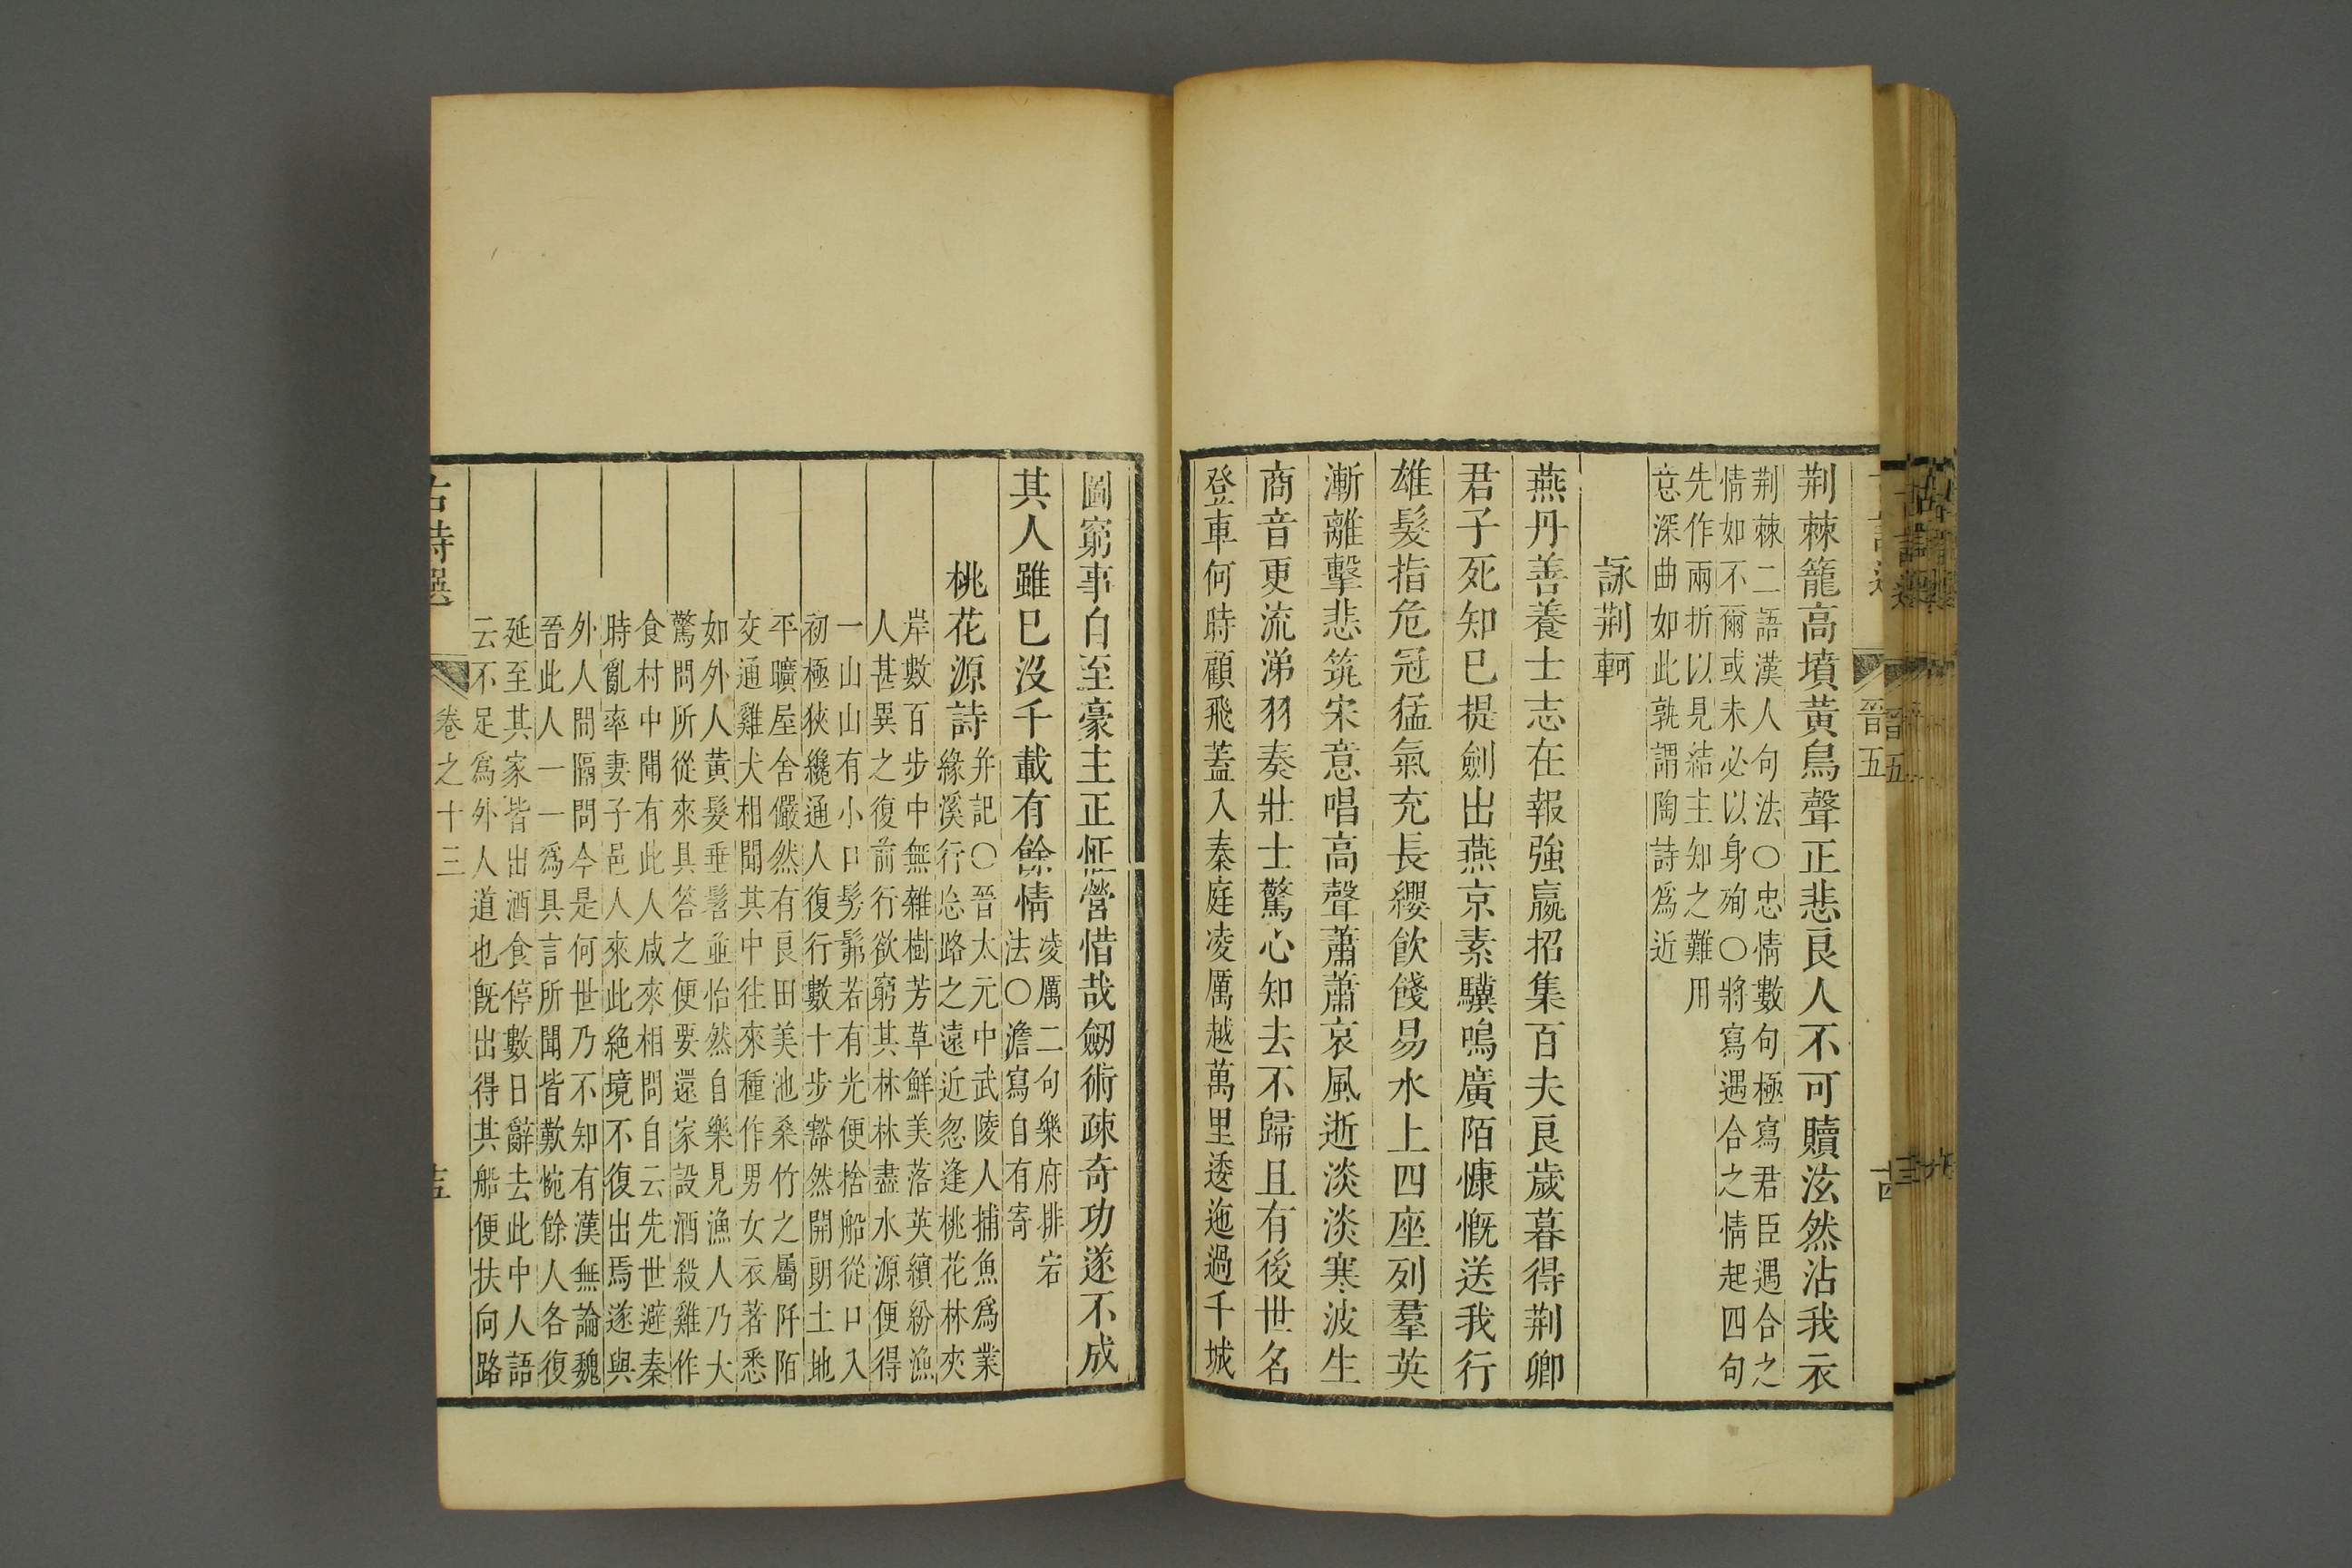 晉五
荆棘籠高墳黃鳥聲正悲良人不可贖泫然沾我衣
荆棘二語漢人句法○忠情數句極寫君臣遇合之
情如不爾或未必以身殉○將寫遇合之情起四句
先作兩折以見結主知之難用
意深曲如此孰謂陶詩爲近
詠荆軻
燕丹善養士志在報強嬴招集百夫良歲暮得荆卿
君子死知已提劍出燕京素驥鳴廣陌慷慨送我行
雄髮指危冠猛氣充長纓飲餞易水上四座列羣英
漸離擊悲筑宋意唱高聲蕭蕭哀風逝淡淡寒波生
商音更流涕羽奏壯士驚心知去不歸且有後世名
登車何時顧飛蓋入秦庭凌厲越萬里逶迤過千城
圖窮事自至豪主正怔營惜哉劒術疎奇功遂不成
其人雖已沒千載有餘情
凌厲二句樂府排宕
法○澹寫自有寄
桃花源詩
并記○晉太元中武陵人捕魚爲業
緣溪行忘路之遠近忽逢桃花林夾
岸數百步中無雜樹芳草鮮美落英繽紛漁
人甚異之復前行欲窮其林林盡水源便得
一山山有小口髣髴若有光便捨船從口入
初極狹纔通人復行數十步豁然開朗土地
平曠屋舍儼然有良田美池桑竹之屬阡陌
交通雞犬相聞其中往來種作男女衣著悉
如外人黃髮垂髫並怡然自樂見漁人乃大
驚問所從來具答之便要還家設酒殺雞作
食村中聞有此人咸來相問自云先世避秦
時亂率妻子邑人來此絶境不復出焉遂與
外人間隔問今是何世乃不知有漢無論魏
晉此人一一爲具言所聞皆歎惋餘人各復
延至其家皆出酒食停數日辭去此中人語
云不足爲外人道也旣出得其船便扶向路
古詩選
卷之十三